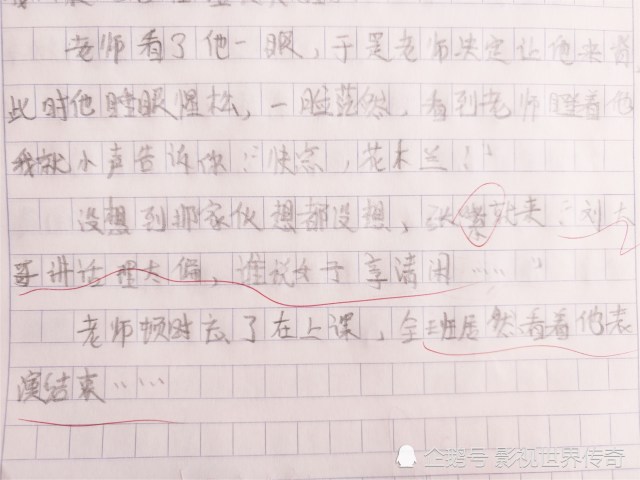 老师看了他一眼，于是老师决定让他来背
此时他睡眼惺松，一脸茫然，看到老师瞪着他
我就小声告诉你：快点，花木兰！
没想到那家伙想都没想，张就来：刘大
哥讲话理太偏，谁说女子享清闲……”
老师顿时忘了在上课，全班居然看着他表
演结束……
企鹅号 影视世界传奇